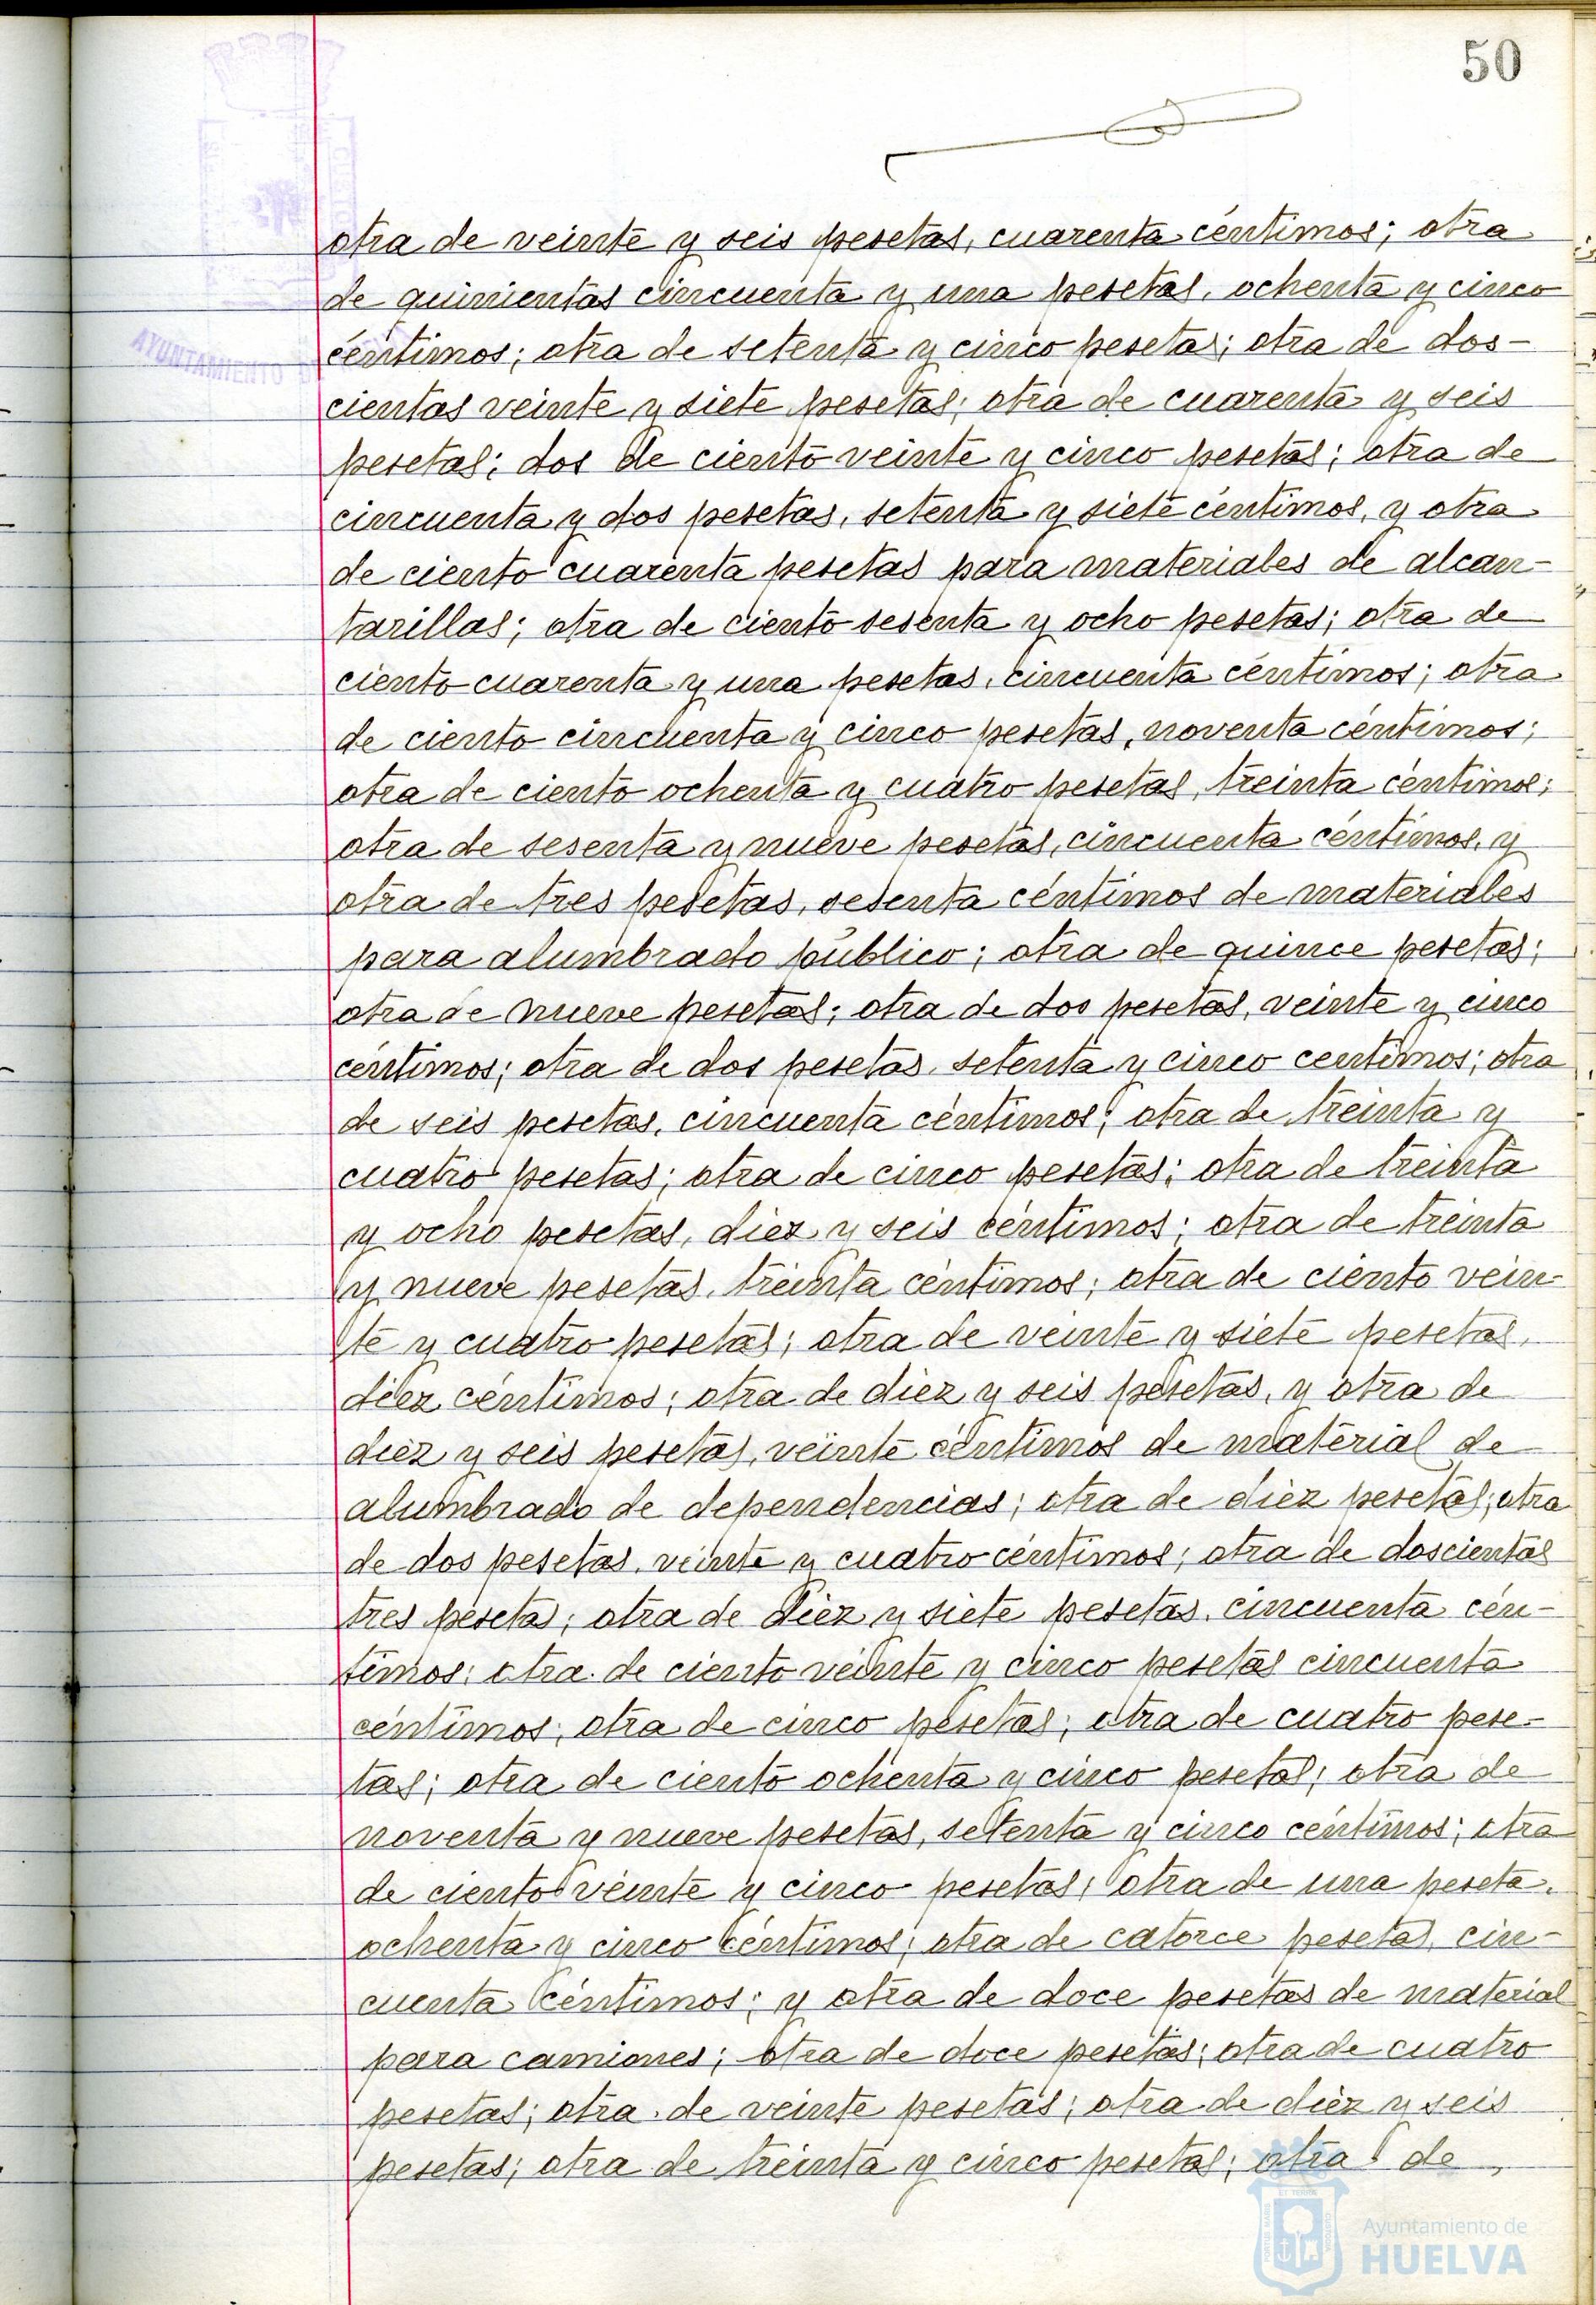 50
otra de veinte y seis pesetas, cuarenta céntimos; otra
de quinientas cincuenta y una pesetas, ochenta y cinco
céntimos; otra de setenta y cinco pesetas; otra de dos-
cientas veinte y siete pesetas; otra de cuarenta y seis
pesetas; dos de ciento veinte y cinco pesetas; otra de
cincuenta y dos pesetas, setenta y siete céntimos, y otra
de ciento cuarenta pesetas para materiales de alcan-
tarillas; otra de ciento sesenta y ocho pesetas; otra de
ciento cuarenta y una pesetas, cincuenta céntimos; otra
de ciento cincuenta y cinco pesetas, noventa céntimos;
otra de ciento ochenta y cuatro pesetas, treinta céntimos;
otra de sesenta y nueve pesetas, cincuenta céntimos, y
otra de tres pesetas, sesenta céntimos de materiales
para alumbrado público; otra de quince pesetas;
otra de nueve pesetas; otra de dos pesetas, veinte y cinco
céntimos; otra de dos pesetas, setenta y cinco centimos; otra
de seis pesetas, cincuenta céntimos; otra de treinta y
cuatro pesetas; otra de cinco pesetas; otra de treinta
y ocho pesetas, diez y seis céntimos; otra de treinta
y nueve pesetas, treinta céntimos; otra de ciento vein-
te y cuatro pesetas; otra de veinte y siete pesetas,
diez céntimos; otra de diez y seis pesetas, y otra de
diez y seis pesetas, veinte céntimos de material de
alumbrado de dependencias; otra de diez pesetas; otra
de dos pesetas, veinte y cuatro céntimos; otra de doscientas
tres pesetas; otra de diez y siete pesetas, cincuenta cén-
timos; otra de ciento veinte y cinco pesetas cincuenta
céntimos; otra de cinco pesetas; otra de cuatro pese-
tas; otra de ciento ochenta y cinco pesetas; otra de
noventa y nueve pesetas, setenta y cinco céntimos; otra
de ciento veinte y cinco pesetas; otra de una peseta,
ochenta y cinco céntimos; otra de catorce pesetas, cin-
cuenta céntimos; y otra de doce pesetas de material
para camiones; otra de doce pesetas; otra de cuatro
pesetas; otra de veinte pesetas; otra de diez y seis
pesetas; otra de treinta y cinco pesetas; otra de
AYUNTAMIENTO
Ayuntamiento de
HUELVA